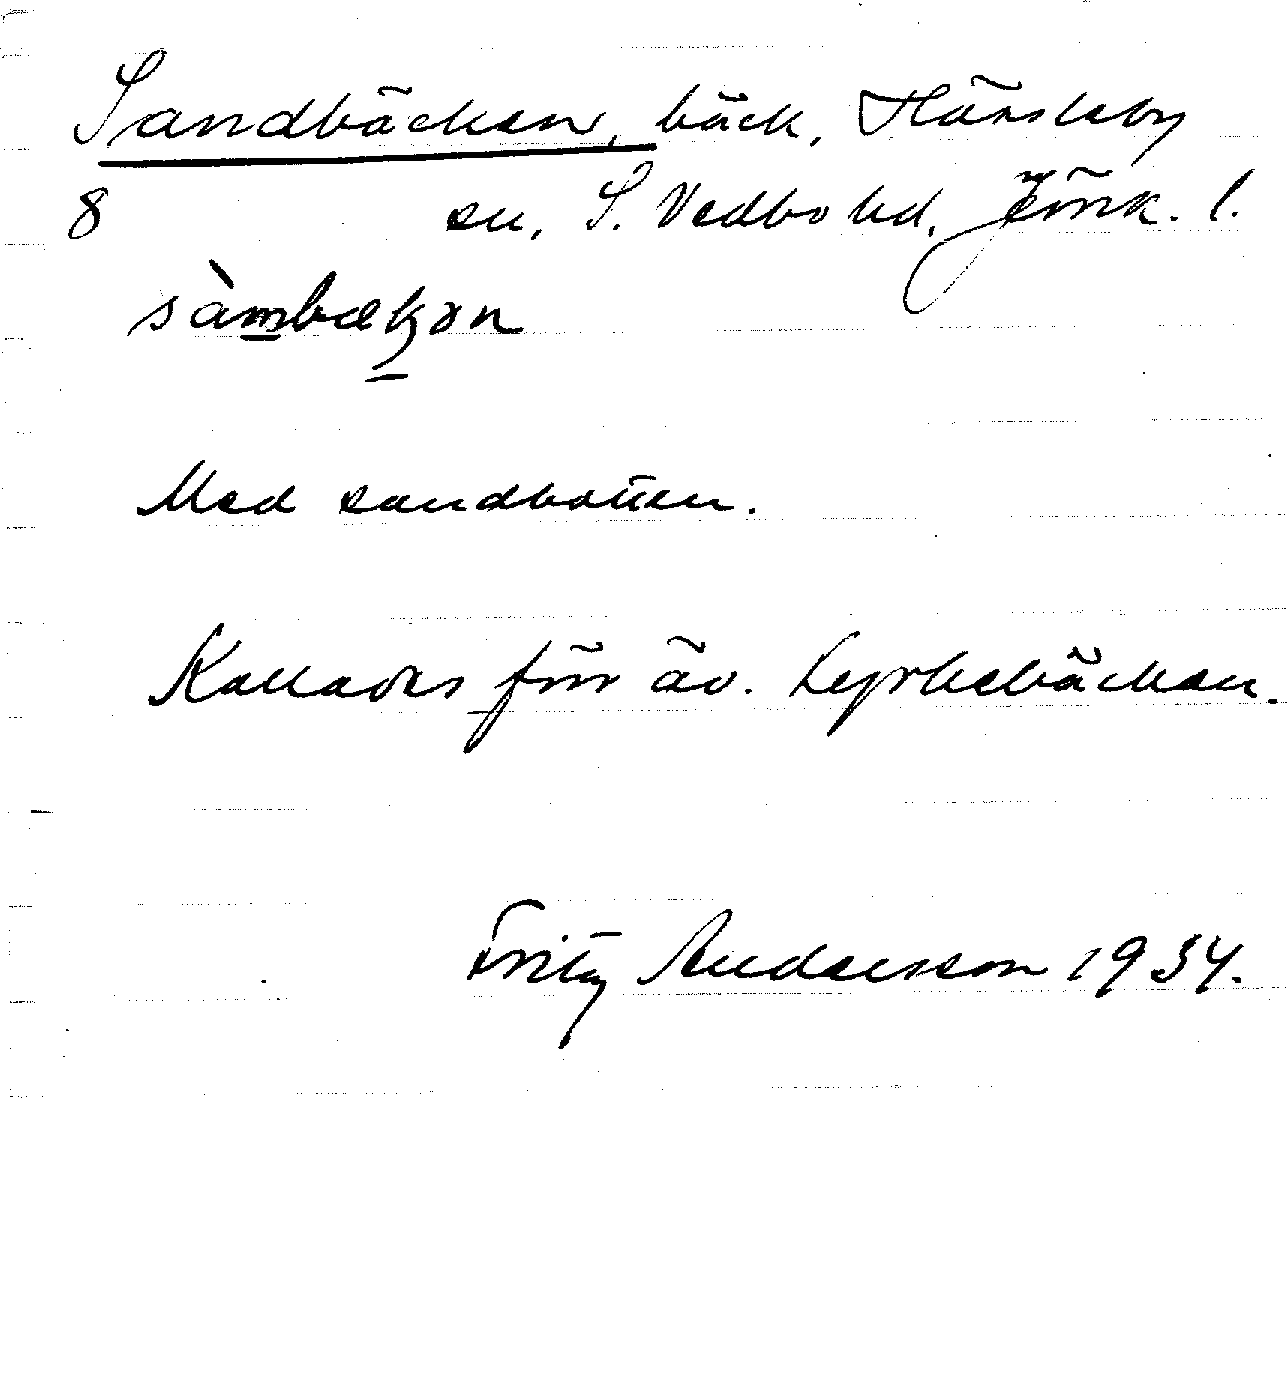 Sandbäcken, bäck, Hässleby
8 sn, S. Vedbo hd, Jönk. l.
sàmbækən
Med sandbotten.
Kallades förr äv. Kyrkebäcken.
Fritz Andersson 1934.